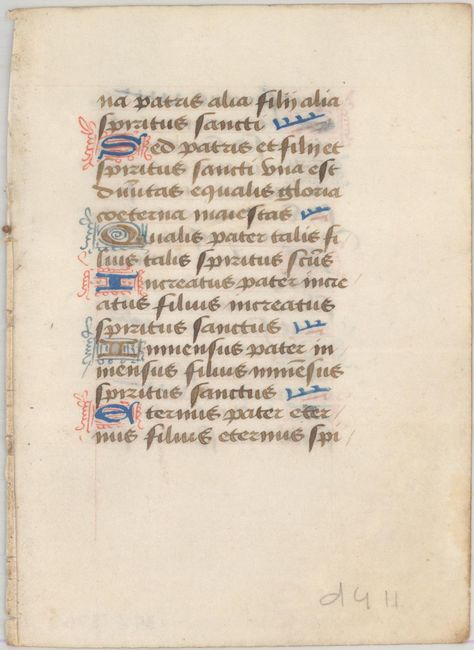 na patris alia filij alia
spiritus sancti
Sed patris et filij et
spiritus sancti vna est
diuinitas equalis gloria
coeterna maiestas
Qualis pater talis fi
lius talis spiritus scūs
Increatus pater incre
atus filius increatus
spiritus sanctus
Inmensus pater in
mensus filius inmēsus
spiritus sanctus
Eternus pater eter
nus filius eternus spi